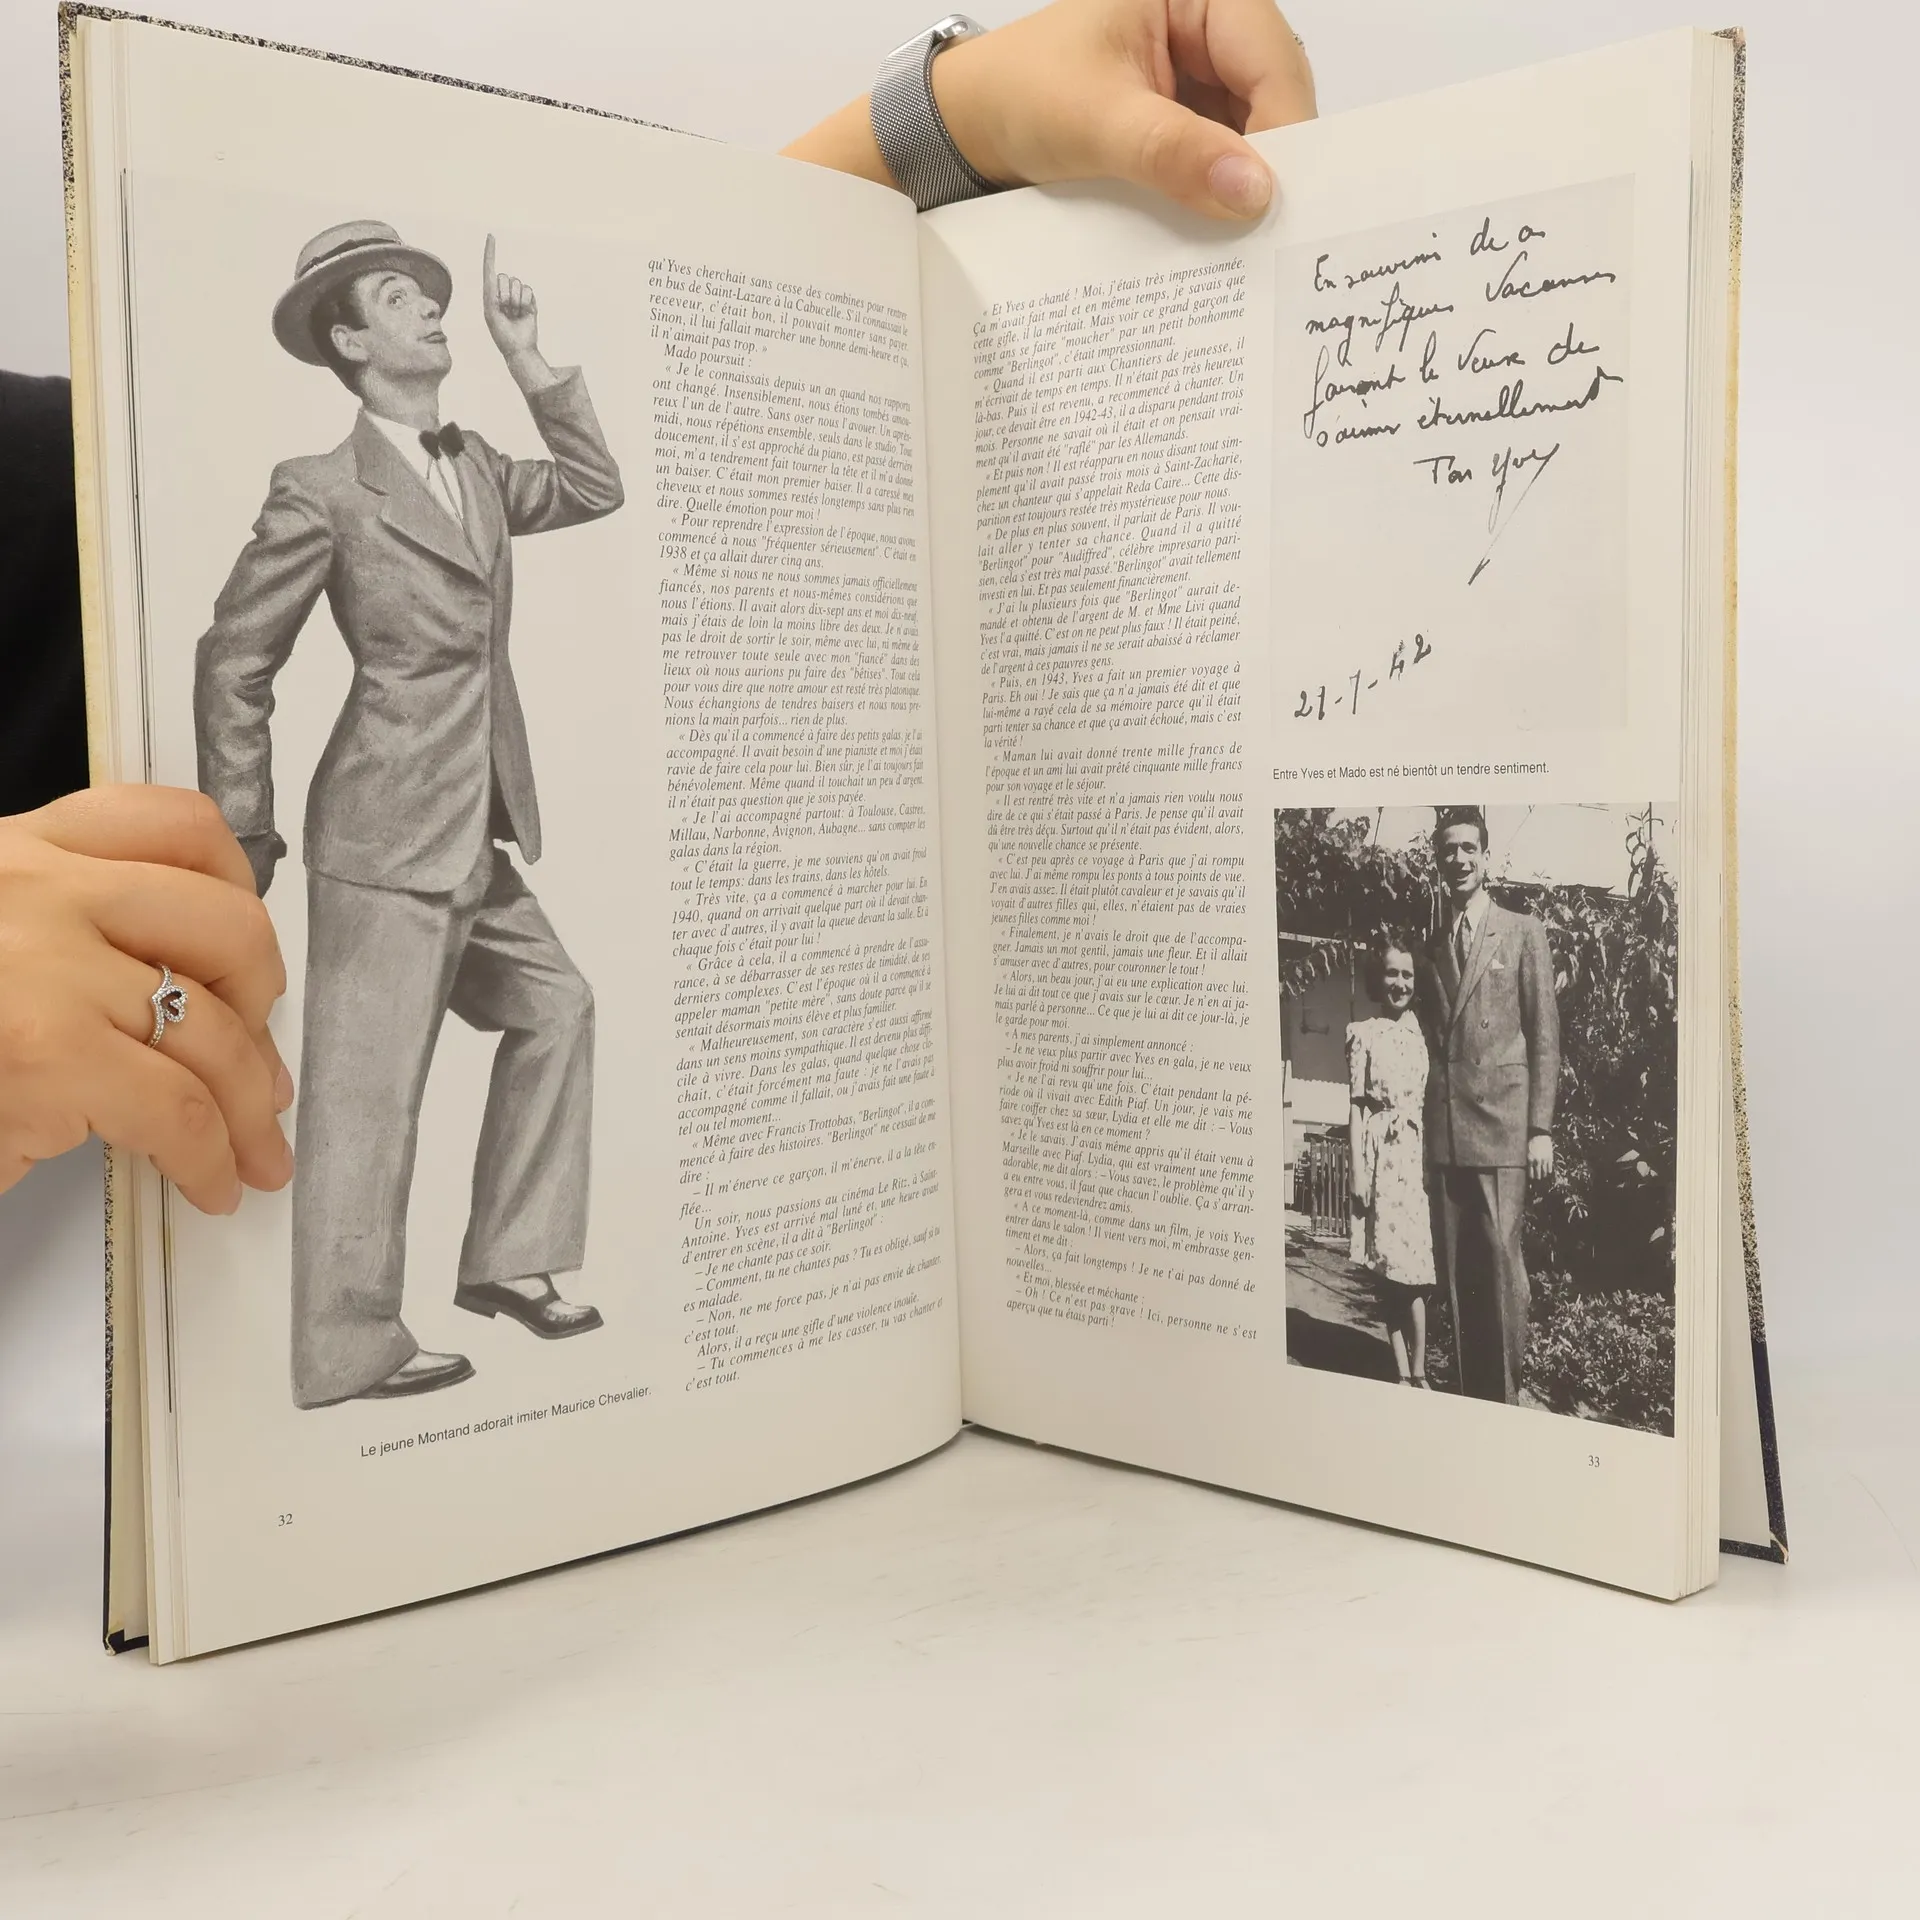 qu'Yves cherchait sans cesse des combines pour rentrer
en bus de Saint-Lazare à la Cabucelle. S'il connaissait le
receveur, c'était bon, il pouvait monter sans payer.
Sinon, il lui fallait marcher une bonne demi-heure et ça,
il n'aimait pas trop. »
Mado poursuit :
« Je le connaissais depuis un an quand nos rapports
ont changé. Insensiblement, nous étions tombés amou-
reux l'un de l'autre. Sans oser nous l'avouer. Un après-
midi, nous répétions ensemble, seuls dans le studio. Tout
doucement, il s'est approché du piano, est passé derrière
moi, m'a tendrement fait tourner la tête et il m'a donné
un baiser. C'était mon premier baiser. Il a caressé mes
cheveux et nous sommes restés longtemps sans plus rien
dire. Quelle émotion pour moi !
« Pour reprendre l'expression de l'époque, nous avons
commencé à nous "fréquenter sérieusement". C'était en
1938 et ça allait durer cinq ans.
« Même si nous ne nous sommes jamais officiellement
fiancés, nos parents et nous-mêmes considérions que
nous l'étions. Il avait alors dix-sept ans et moi dix-neuf,
mais j'étais de loin la moins libre des deux. Je n'avais
pas le droit de sortir le soir, même avec lui, ni même de
me retrouver toute seule avec mon "fiancé" dans des
lieux où nous aurions pu faire des "bêtises". Tout cela
pour vous dire que notre amour est resté très platonique.
Nous échangions de tendres baisers et nous nous pre-
nions la main parfois... rien de plus.
« Dès qu'il a commencé à faire des petits galas, je l'ai
accompagné. Il avait besoin d'une pianiste et moi j'étais
ravie de faire cela pour lui. Bien sûr, je l'ai toujours fait
bénévolement. Même quand il touchait un peu d'argent,
il n'était pas question que je sois payée.
« Je l'ai accompagné partout: à Toulouse, Castres,
Millau, Narbonne, Avignon, Aubagne... sans compter les
galas dans la région.
« C'était la guerre, je me souviens qu'on avait froid
tout le temps: dans les trains, dans les hôtels.
« Très vite, ça a commencé à marcher pour lui. En
1940, quand on arrivait quelque part où il devait chan-
ter avec d'autres, il y avait la queue devant la salle. Et à
chaque fois c'était pour lui !
« Grâce à cela, il a commencé à prendre de l'assu-
rance, à se débarrasser de ses restes de timidité, de ses
derniers complexes. C'est l'époque où il a commencé à
appeler maman "petite mère", sans doute parce qu'il se
sentait désormais moins élève et plus familier.
« Malheureusement, son caractère s'est aussi affirmé
dans un sens moins sympathique. Il est devenu plus diffi-
cile à vivre. Dans les galas, quand quelque chose clo-
chait, c'était forcément ma faute : je ne l'avais pas
accompagné comme il fallait, ou j'avais fait une faute à
tel ou tel moment...
« Même avec Francis Trottobas, "Berlingot", il a com-
mencé à faire des histoires. "Berlingot" ne cessait de me
dire :
– Il m'énerve ce garçon, il m'énerve, il a la tête en-
flée...
Un soir, nous passions au cinéma Le Ritz, à Saint-
Antoine. Yves est arrivé mal luné et, une heure avant
d'entrer en scène, il a dit à "Berlingot" :
– Je ne chante pas ce soir.
– Comment, tu ne chantes pas ? Tu es obligé, sauf si tu
es malade.
– Non, ne me force pas, je n'ai pas envie de chanter,
c'est tout.
Alors, il a reçu une gifle d'une violence inouïe.
– Tu commences à me les casser, tu vas chanter et
c'est tout.
Le jeune Montand adorait imiter Maurice Chevalier.
32
« Et Yves a chanté ! Moi, j'étais très impressionnée.
Ça m'avait fait mal et en même temps, je savais que
cette gifle, il la méritait. Mais voir ce grand garçon de
vingt ans se faire "moucher" par un petit bonhomme
comme "Berlingot", c'était impressionnant.
« Quand il est parti aux Chantiers de jeunesse, il
m'écrivait de temps en temps. Il n'était pas très heureux
là-bas. Puis il est revenu, a recommencé à chanter. Un
jour, ce devait être en 1942-43, il a disparu pendant trois
mois. Personne ne savait où il était et on pensait vrai-
ment qu'il avait été "raflé" par les Allemands.
« Et puis non ! Il est réapparu en nous disant tout sim-
plement qu'il avait passé trois mois à Saint-Zacharie,
chez un chanteur qui s'appelait Reda Caire... Cette dis-
parition est toujours restée très mystérieuse pour nous.
« De plus en plus souvent, il parlait de Paris. Il vou-
lait aller y tenter sa chance. Quand il a quitté
"Berlingot" pour "Audiffred", célèbre impresario pari-
sien, cela s'est très mal passé. "Berlingot" avait tellement
investi en lui. Et pas seulement financièrement.
« J'ai lu plusieurs fois que "Berlingot" aurait de-
mandé et obtenu de l'argent de M. et Mme Livi quand
Yves l'a quitté. C'est on ne peut plus faux ! Il était peiné,
c'est vrai, mais jamais il ne se serait abaissé à réclamer
de l'argent à ces pauvres gens.
« Puis, en 1943, Yves a fait un premier voyage à
Paris. Eh oui ! Je sais que ça n'a jamais été dit et que
lui-même a rayé cela de sa mémoire parce qu'il était
parti tenter sa chance et que ça avait échoué, mais c'est
la vérité !
« Maman lui avait donné trente mille francs de
l'époque et un ami lui avait prêté cinquante mille francs
pour son voyage et le séjour.
« Il est rentré très vite et n'a jamais rien voulu nous
dire de ce qui s'était passé à Paris. Je pense qu'il avait
dû être très déçu. Surtout qu'il n'était pas évident, alors,
qu'une nouvelle chance se présente.
« C'est peu après ce voyage à Paris que j'ai rompu
avec lui. J'ai même rompu les ponts à tous points de vue.
J'en avais assez. Il était plutôt cavaleur et je savais qu'il
voyait d'autres filles qui, elles, n'étaient pas de vraies
jeunes filles comme moi !
« Finalement, je n'avais le droit que de l'accompa-
gner. Jamais un mot gentil, jamais une fleur. Et il allait
s'amuser avec d'autres, pour couronner le tout !
« Alors, un beau jour, j'ai eu une explication avec lui.
Je lui ai dit tout ce que j'avais sur le cœur. Je n'en ai ja-
mais parlé à personne... Ce que je lui ai dit ce jour-là, je
le garde pour moi.
« A mes parents, j'ai simplement annoncé :
– Je ne veux plus partir avec Yves en gala, je ne veux
plus avoir froid ni souffrir pour lui...
« Je ne l'ai revu qu'une fois. C'était pendant la pé-
riode où il vivait avec Edith Piaf. Un jour, je vais me
faire coiffer chez sa sœur, Lydia et elle me dit : – Vous
savez qu'Yves est là en ce moment ?
« Je le savais. J'avais même appris qu'il était venu à
Marseille avec Piaf. Lydia, qui est vraiment une femme
adorable, me dit alors : – Vous savez, le problème qu'il y
a eu entre vous, il faut que chacun l'oublie. Ça s'arran-
gera et vous redeviendrez amis.
« A ce moment-là, comme dans un film, je vois Yves
entrer dans le salon ! Il vient vers moi, m'embrasse gen-
timent et me dit :
– Alors, ça fait longtemps ! Je ne t'ai pas donné de
nouvelles...
« Et moi, blessée et méchante :
– Oh ! Ce n'est pas grave ! Ici, personne ne s'est
aperçu que tu étais parti !
En souvenir de
magnifiques Vacances
faisant le Veux de
s'aimer éternellement
Ton Yves
21-7-42
Entre Yves et Mado est né bientôt un tendre sentiment.
33